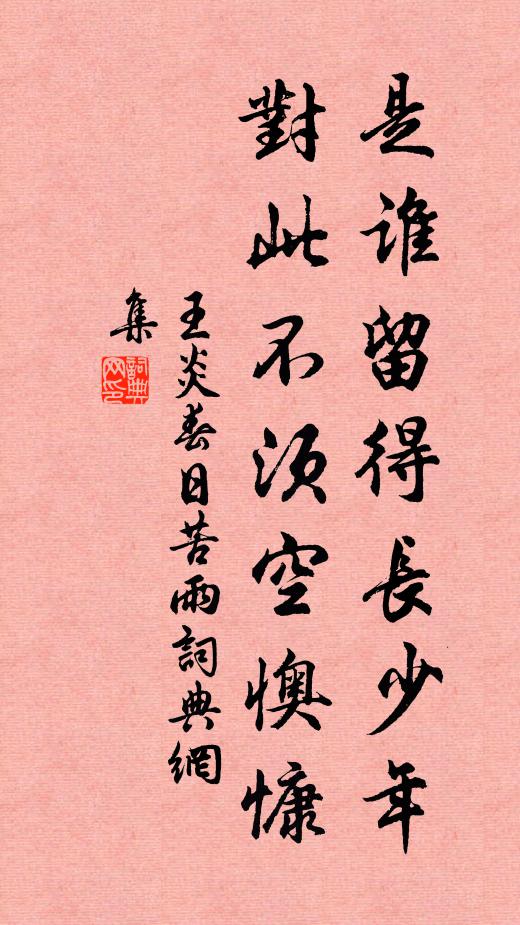 是誰留得長少年
對此不須空懊慷
王炎春日苦雨詞典網
集
詞典網印